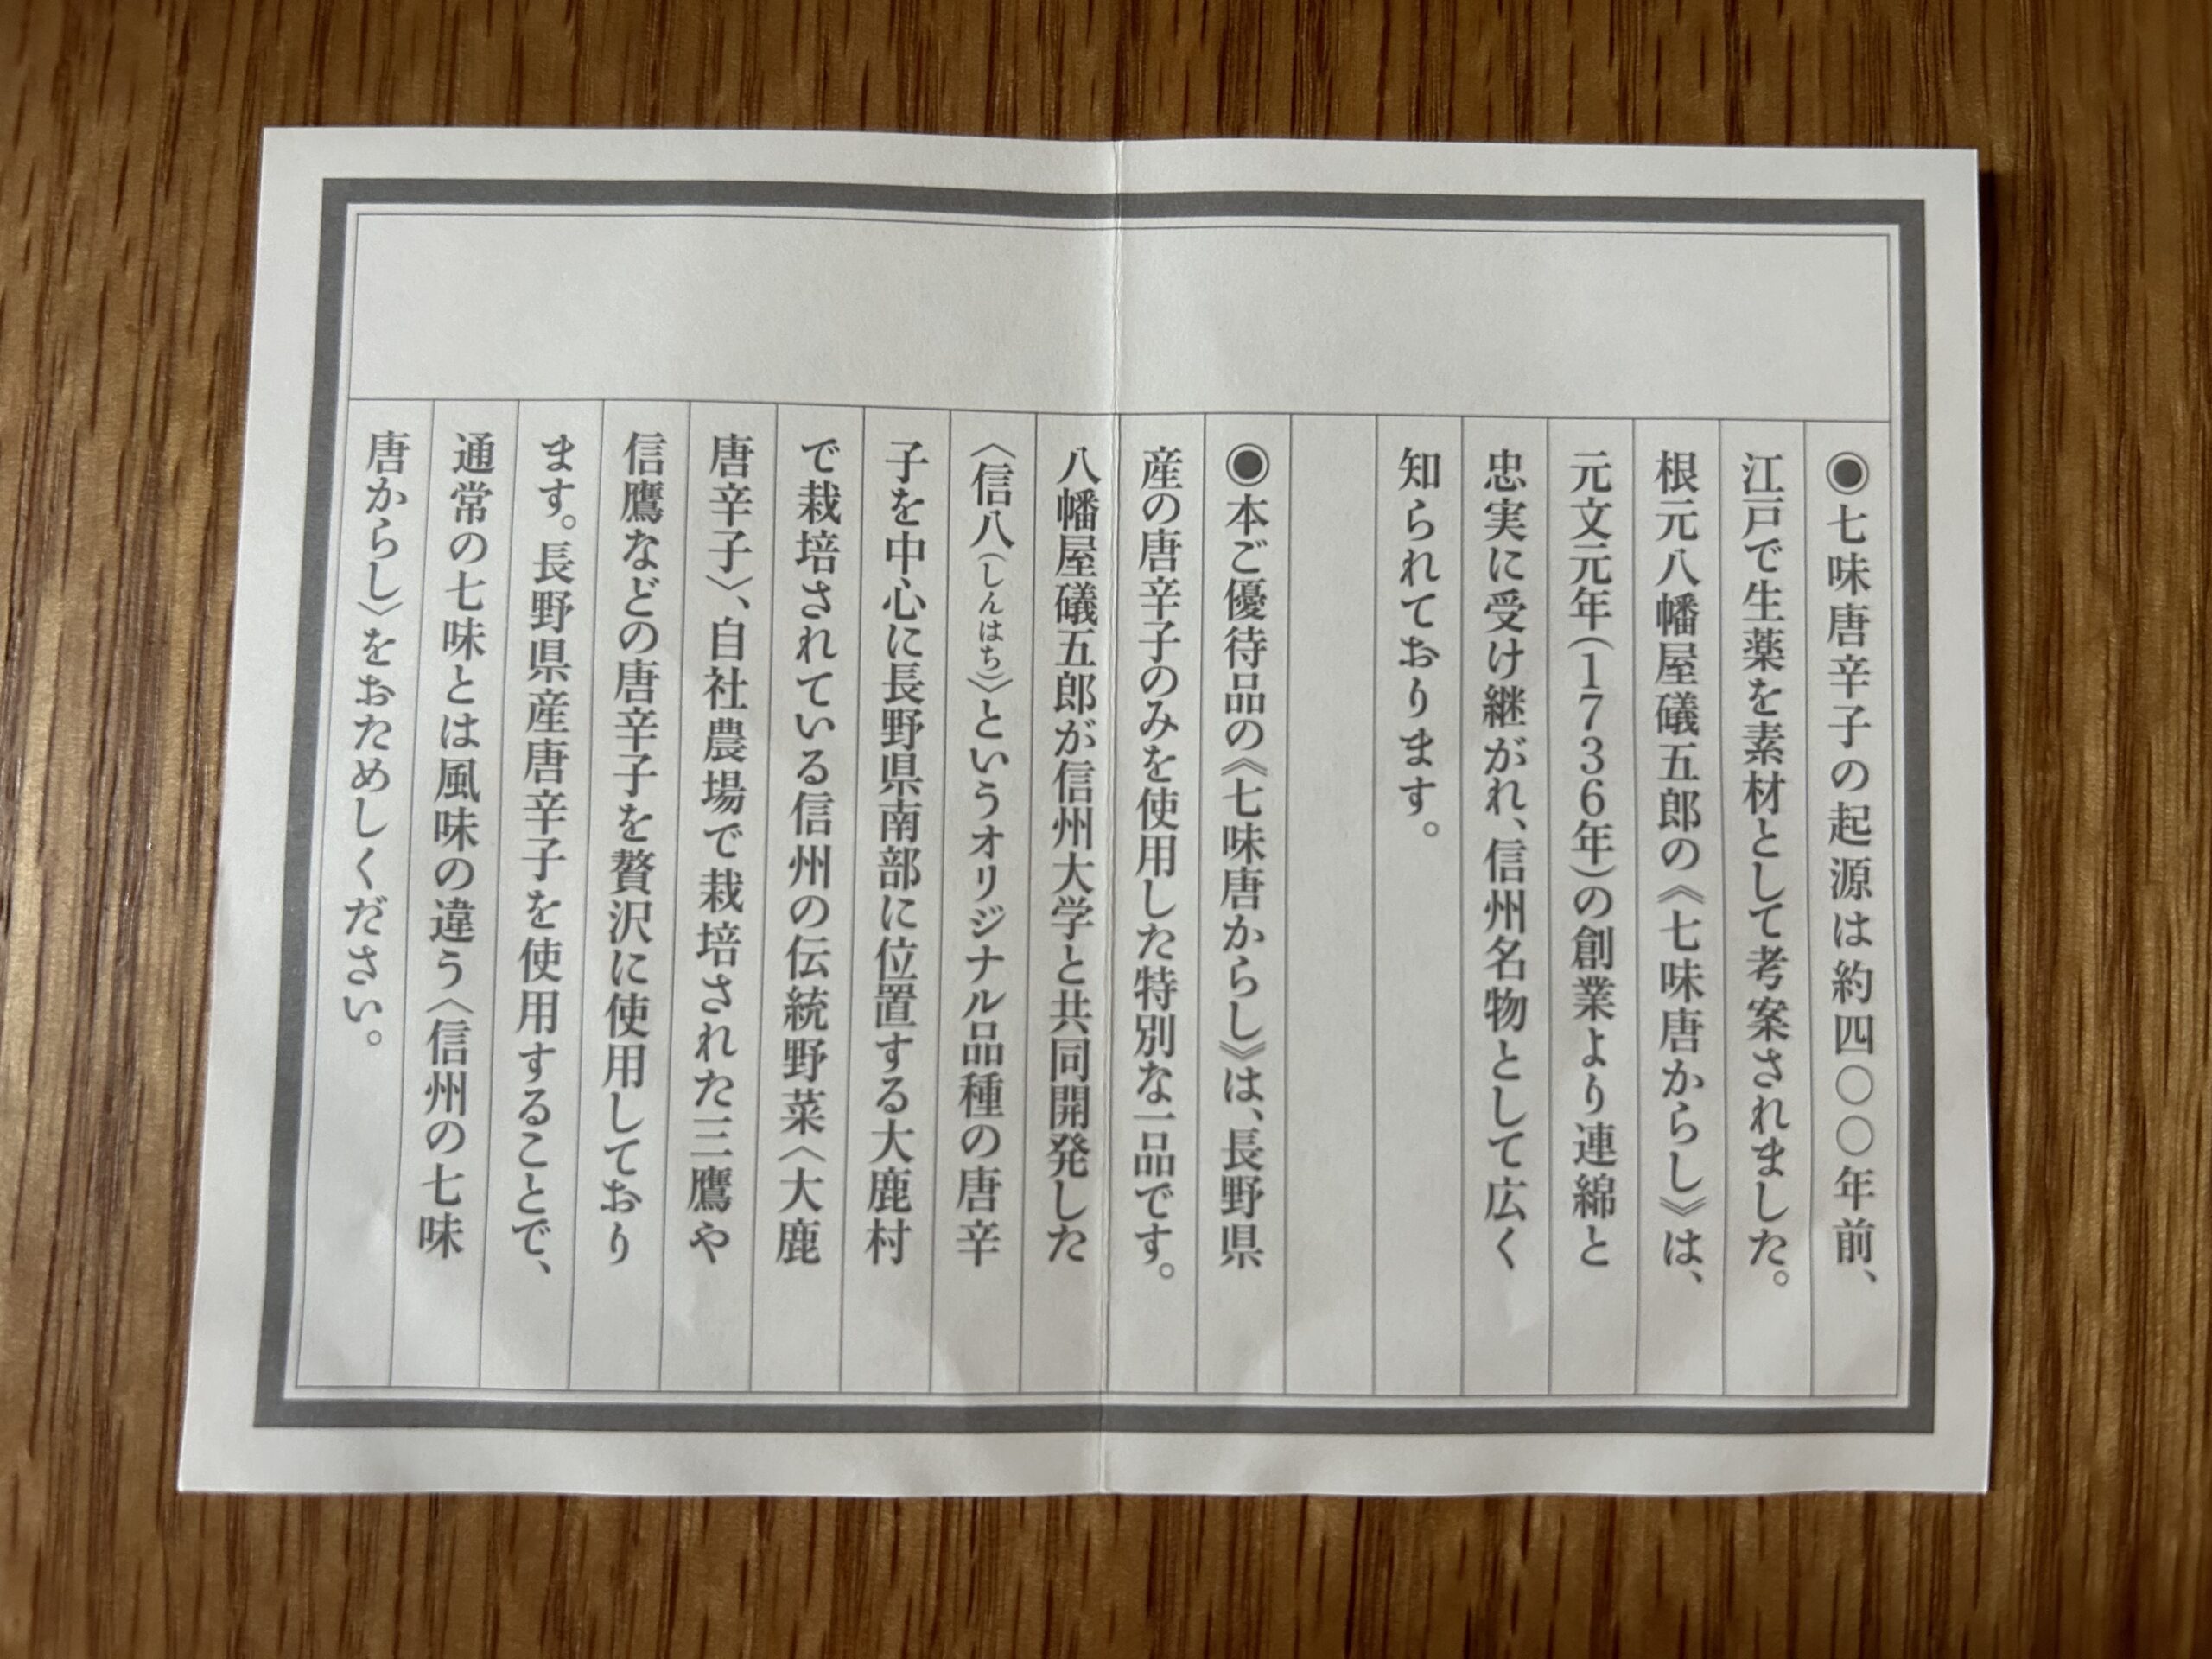 ◉七味唐辛子の起源は約四〇〇年前、
江戸で生薬を素材として考案されました。
根元八幡屋礒五郎の《七味唐からし》は、
元文元年(1736年)の創業より連綿と
忠実に受け継がれ、信州名物として広く
知られております。
◉本ご優待品の《七味唐からし》は、長野県
産の唐辛子のみを使用した特別な一品です。
八幡屋礒五郎が信州大学と共同開発した
〈信八(しんはち)〉というオリジナル品種の唐辛
子を中心に長野県南部に位置する大鹿村
で栽培されている信州の伝統野菜〈大鹿
唐辛子〉、自社農場で栽培された三鷹や
信鷹などの唐辛子を贅沢に使用しており
ます。長野県産唐辛子を使用することで、
通常の七味とは風味の違う〈信州の七味
唐からし〉をおためしください。